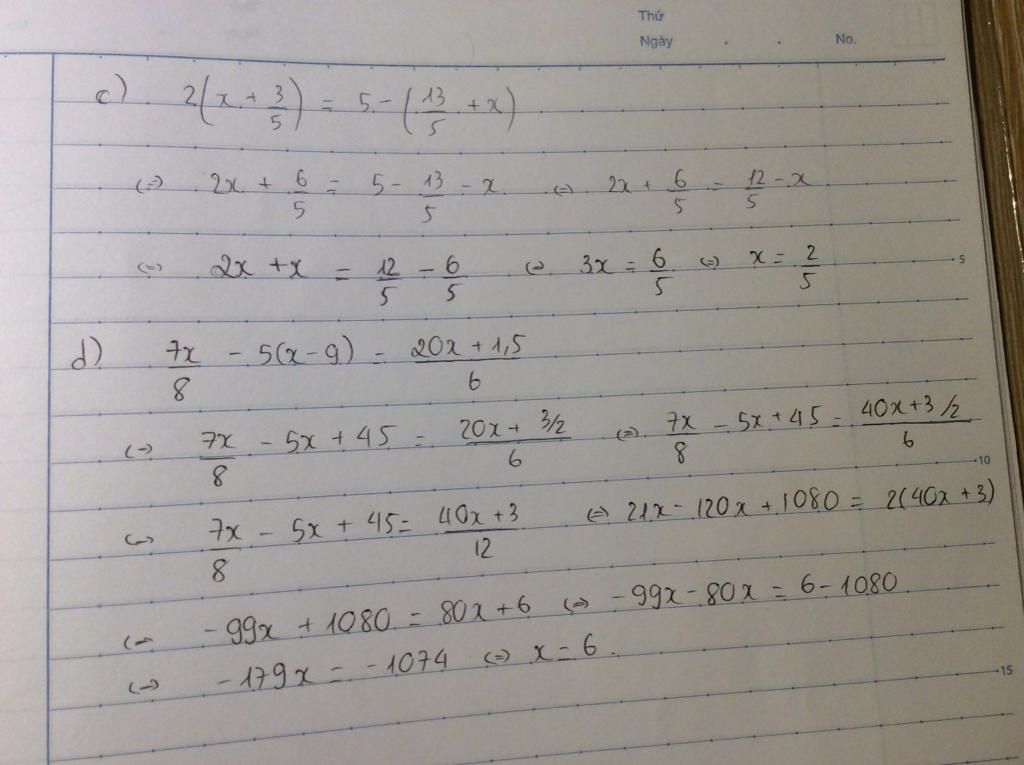 Thứ
Ngày . . No.
c) 2(x + 3/5) = 5 - (13/5 + x)
(=) 2x + 6/5 = 5 - 13/5 - x (=) 2x + 6/5 = 12/5 - x
(=) 2x + x = 12/5 - 6/5 (=) 3x = 6/5 (=) x = 2/5
5
d) 7x/8 - 5(x-9) = (20x + 1,5)/6
(=) 7x/8 - 5x + 45 = (20x + 3/2)/6 (=) 7x/8 - 5x + 45 = (40x+3/2)/6
10
(=) 7x/8 - 5x + 45 = (40x + 3)/12 (=) 21x - 120x + 1080 = 2(40x + 3)
(=) -99x + 1080 = 80x + 6 (=) -99x - 80x = 6 - 1080
(=) -179x = -1074 (=) x = 6.
15